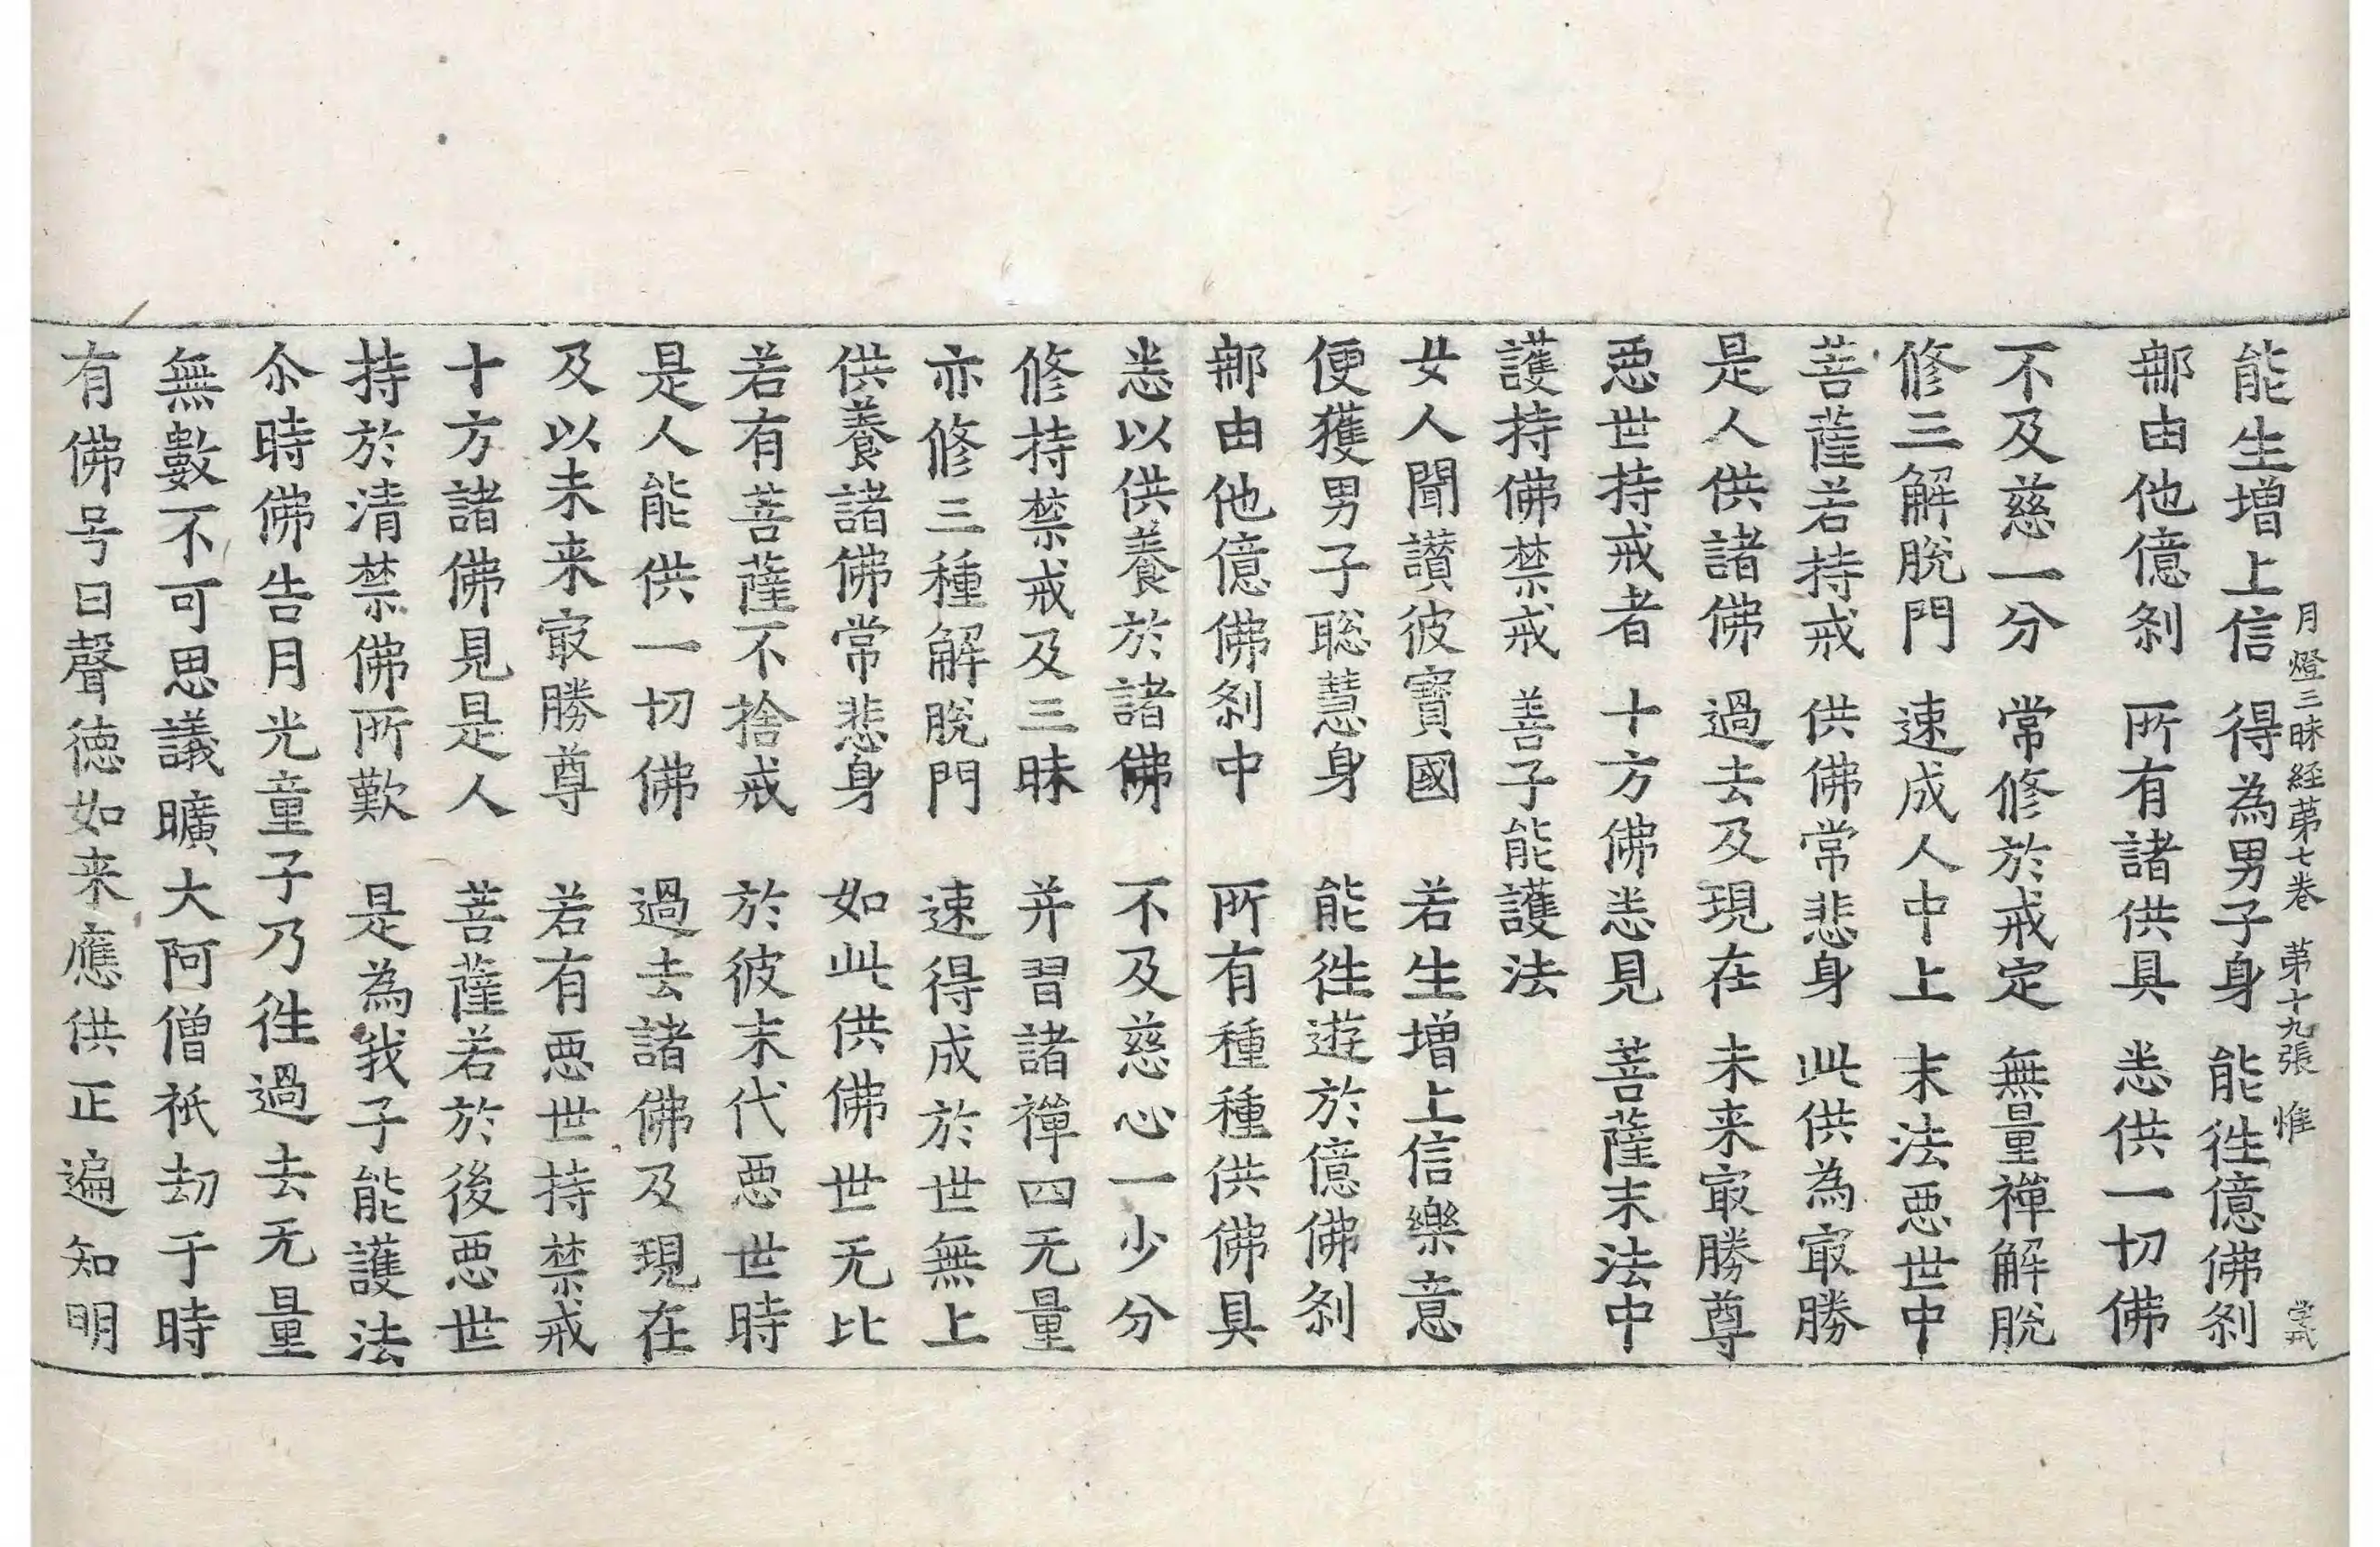 月燈三昧経苐七卷　苐十九張　惟
能生增上信　得為男子身　能徃億佛刹
𨚗由他億刹　所有諸供具　悉供一切佛
不及慈一分　常修於戒定　無量禪解脫
修三解脫門　速成人中上　末法惡世中
菩薩若持戒　供佛常悲身　此供為㝡勝
是人供諸佛　過去及現在　未来㝡勝尊
惡世持戒者　十方佛悉見　菩薩末法中
護持佛禁戒　善子能護法
女人聞讚彼寳國　若生增上信樂意
便獲男子聡慧身　能徃遊於億佛刹
𨚗由他億佛刹中　所有種種供佛具
悉以供養於諸佛　不及慈心一少分
修持禁戒及三昧　并習諸禪四无量
亦修三種解脫門　速得成於世無上
供養諸佛常悲身　如此供佛世无比
若有菩薩不捨戒　於彼末代惡世時
是人能供一切佛　過去諸佛及現在
及以未来㝡勝尊　若有惡世持禁戒
十方諸佛見是人　菩薩若於後惡世
持於清禁佛所歎　是為我子能護法
尒時佛告月光童子乃徃過去无量
無數不可思議曠大阿僧祇劫于時
有佛号曰聲德如来應供正遍知明